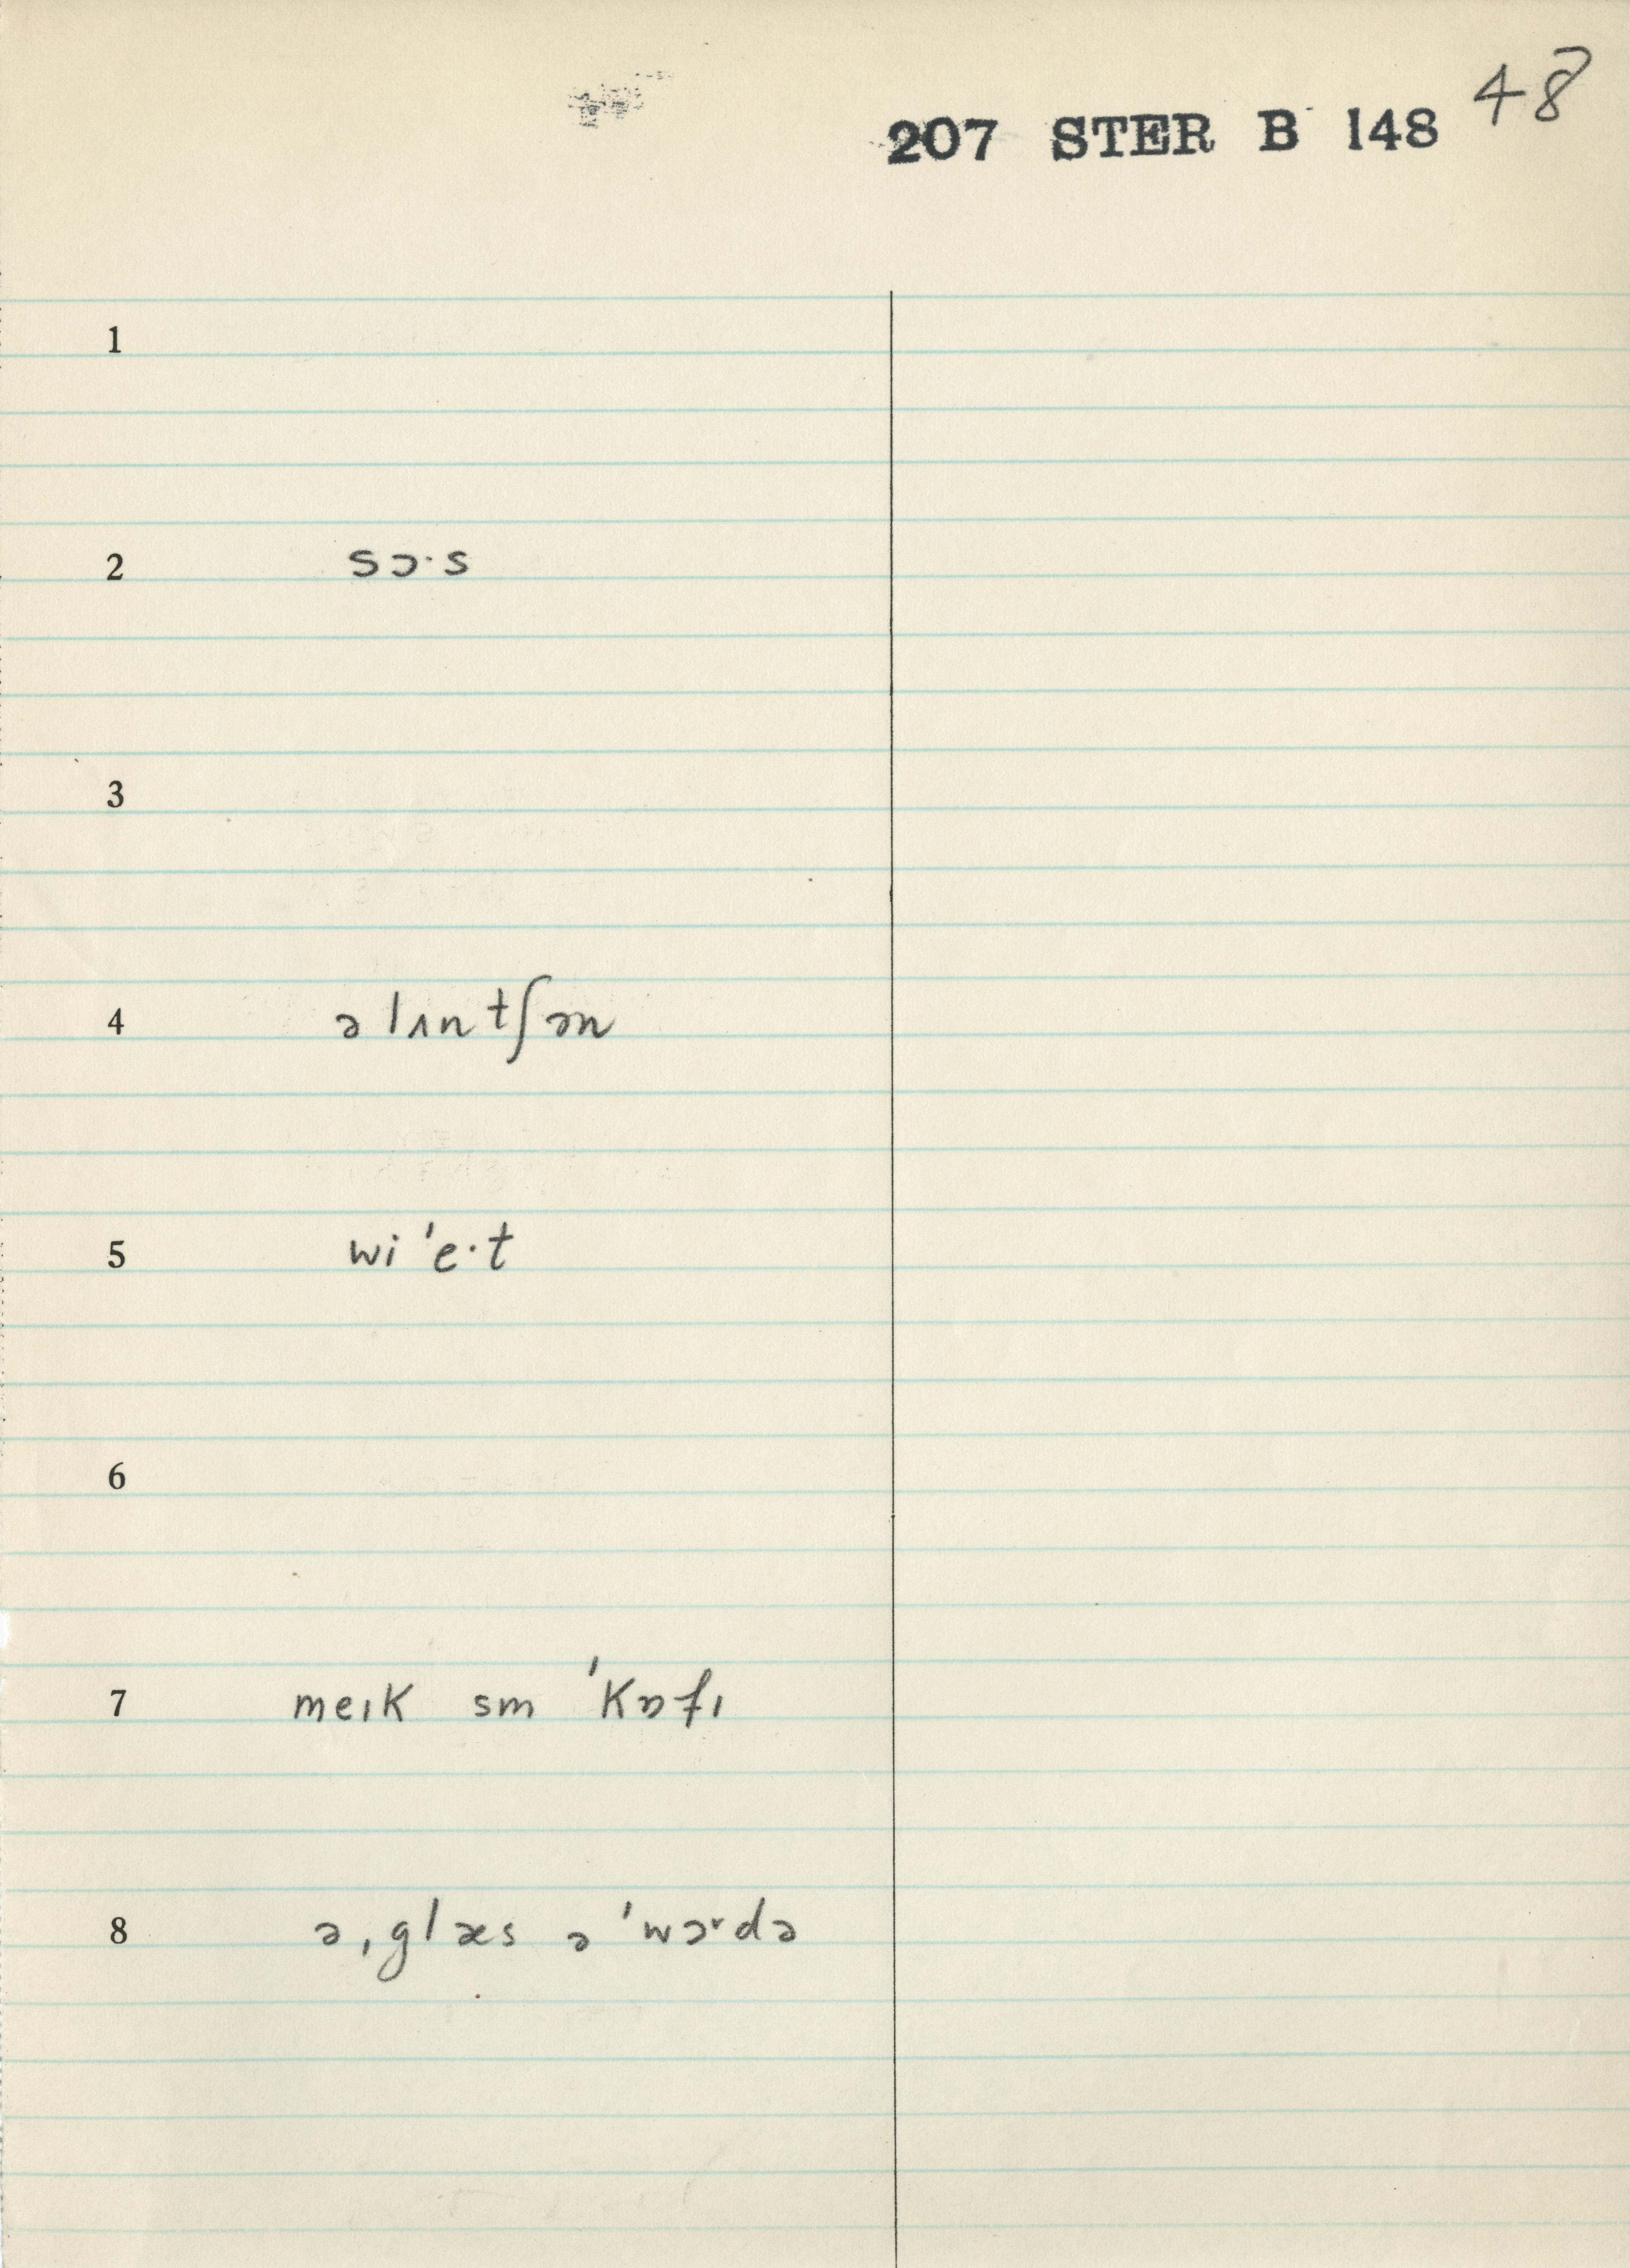 48
207 STER B 148
1
2 sɔ·s
3
4 ə lʌn tʃən
5 wi 'e·t
6
7 meɪk sm 'kɒfɪ
8 ə ˌglæs ə 'wɔrdə